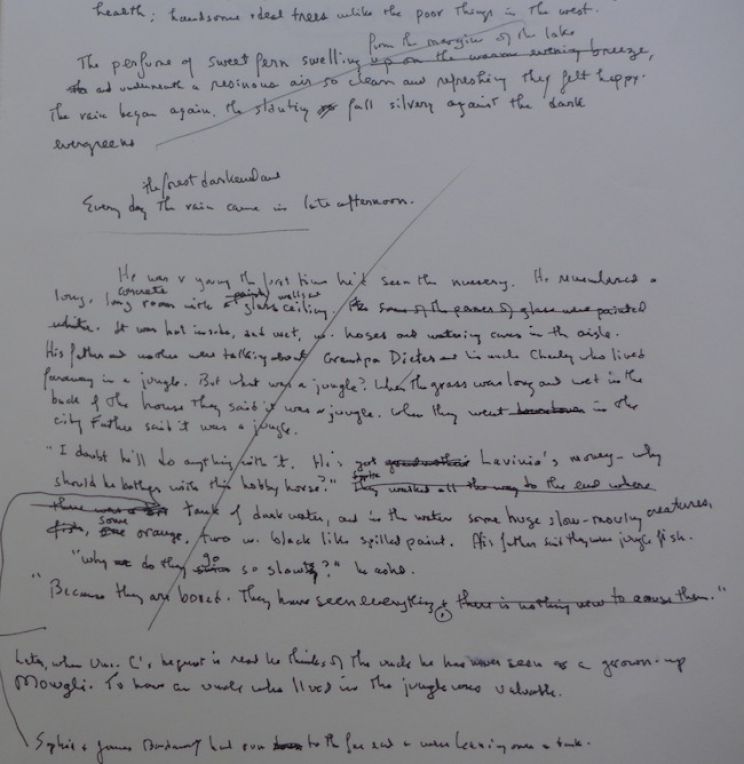 health; handsome ideal trees unlike the poor things in the west.
from the margins of the lake
The perfume of sweet fern swelling up on the warm evening breeze,
and underneath a resinous air so clean and refreshing they felt happy.
The rain began again, the slanting fall silvery against the dark
evergreens
the forest darkened and
Every day the rain came in late afternoon.
He was v young the first time he'd seen the nursery. He remembered a
concrete walls and
long, long room with a glass ceiling. The some of the panes of glass were painted
white. It was hot inside, and wet, w. hoses and watering cans in the aisle.
His father and mother were talking about Grandpa Dieter and his uncle Charley who lived
faraway in a jungle. But what was a jungle? When the grass was long and wet in the
back of the house they said it was a jungle. When they went downtown in the
city Father said it was a jungle.
"I doubt he'll do anything with it. He's got grandmother Lavinia's money – why
should he bother with this hobby horse?" They walked all the way to the end where
there was a tank of dark water, and in the water some huge slow-moving creatures,
fish, some orange, two w. black like spilled paint. His father said they were jungle fish.
"Why do they go so slow?" he asked.
"Because they are bored. They have seen everything & there is nothing new to amuse them."
Later, when Unc. C's bequest is read he thinks of the uncle he has never seen as a grown-up
Mowgli. To have an uncle who lived in the jungle was valuable.
Sophia & James had run to the far end &amp; were leaning over a tank.